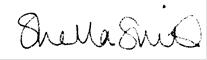 Sheila Smith